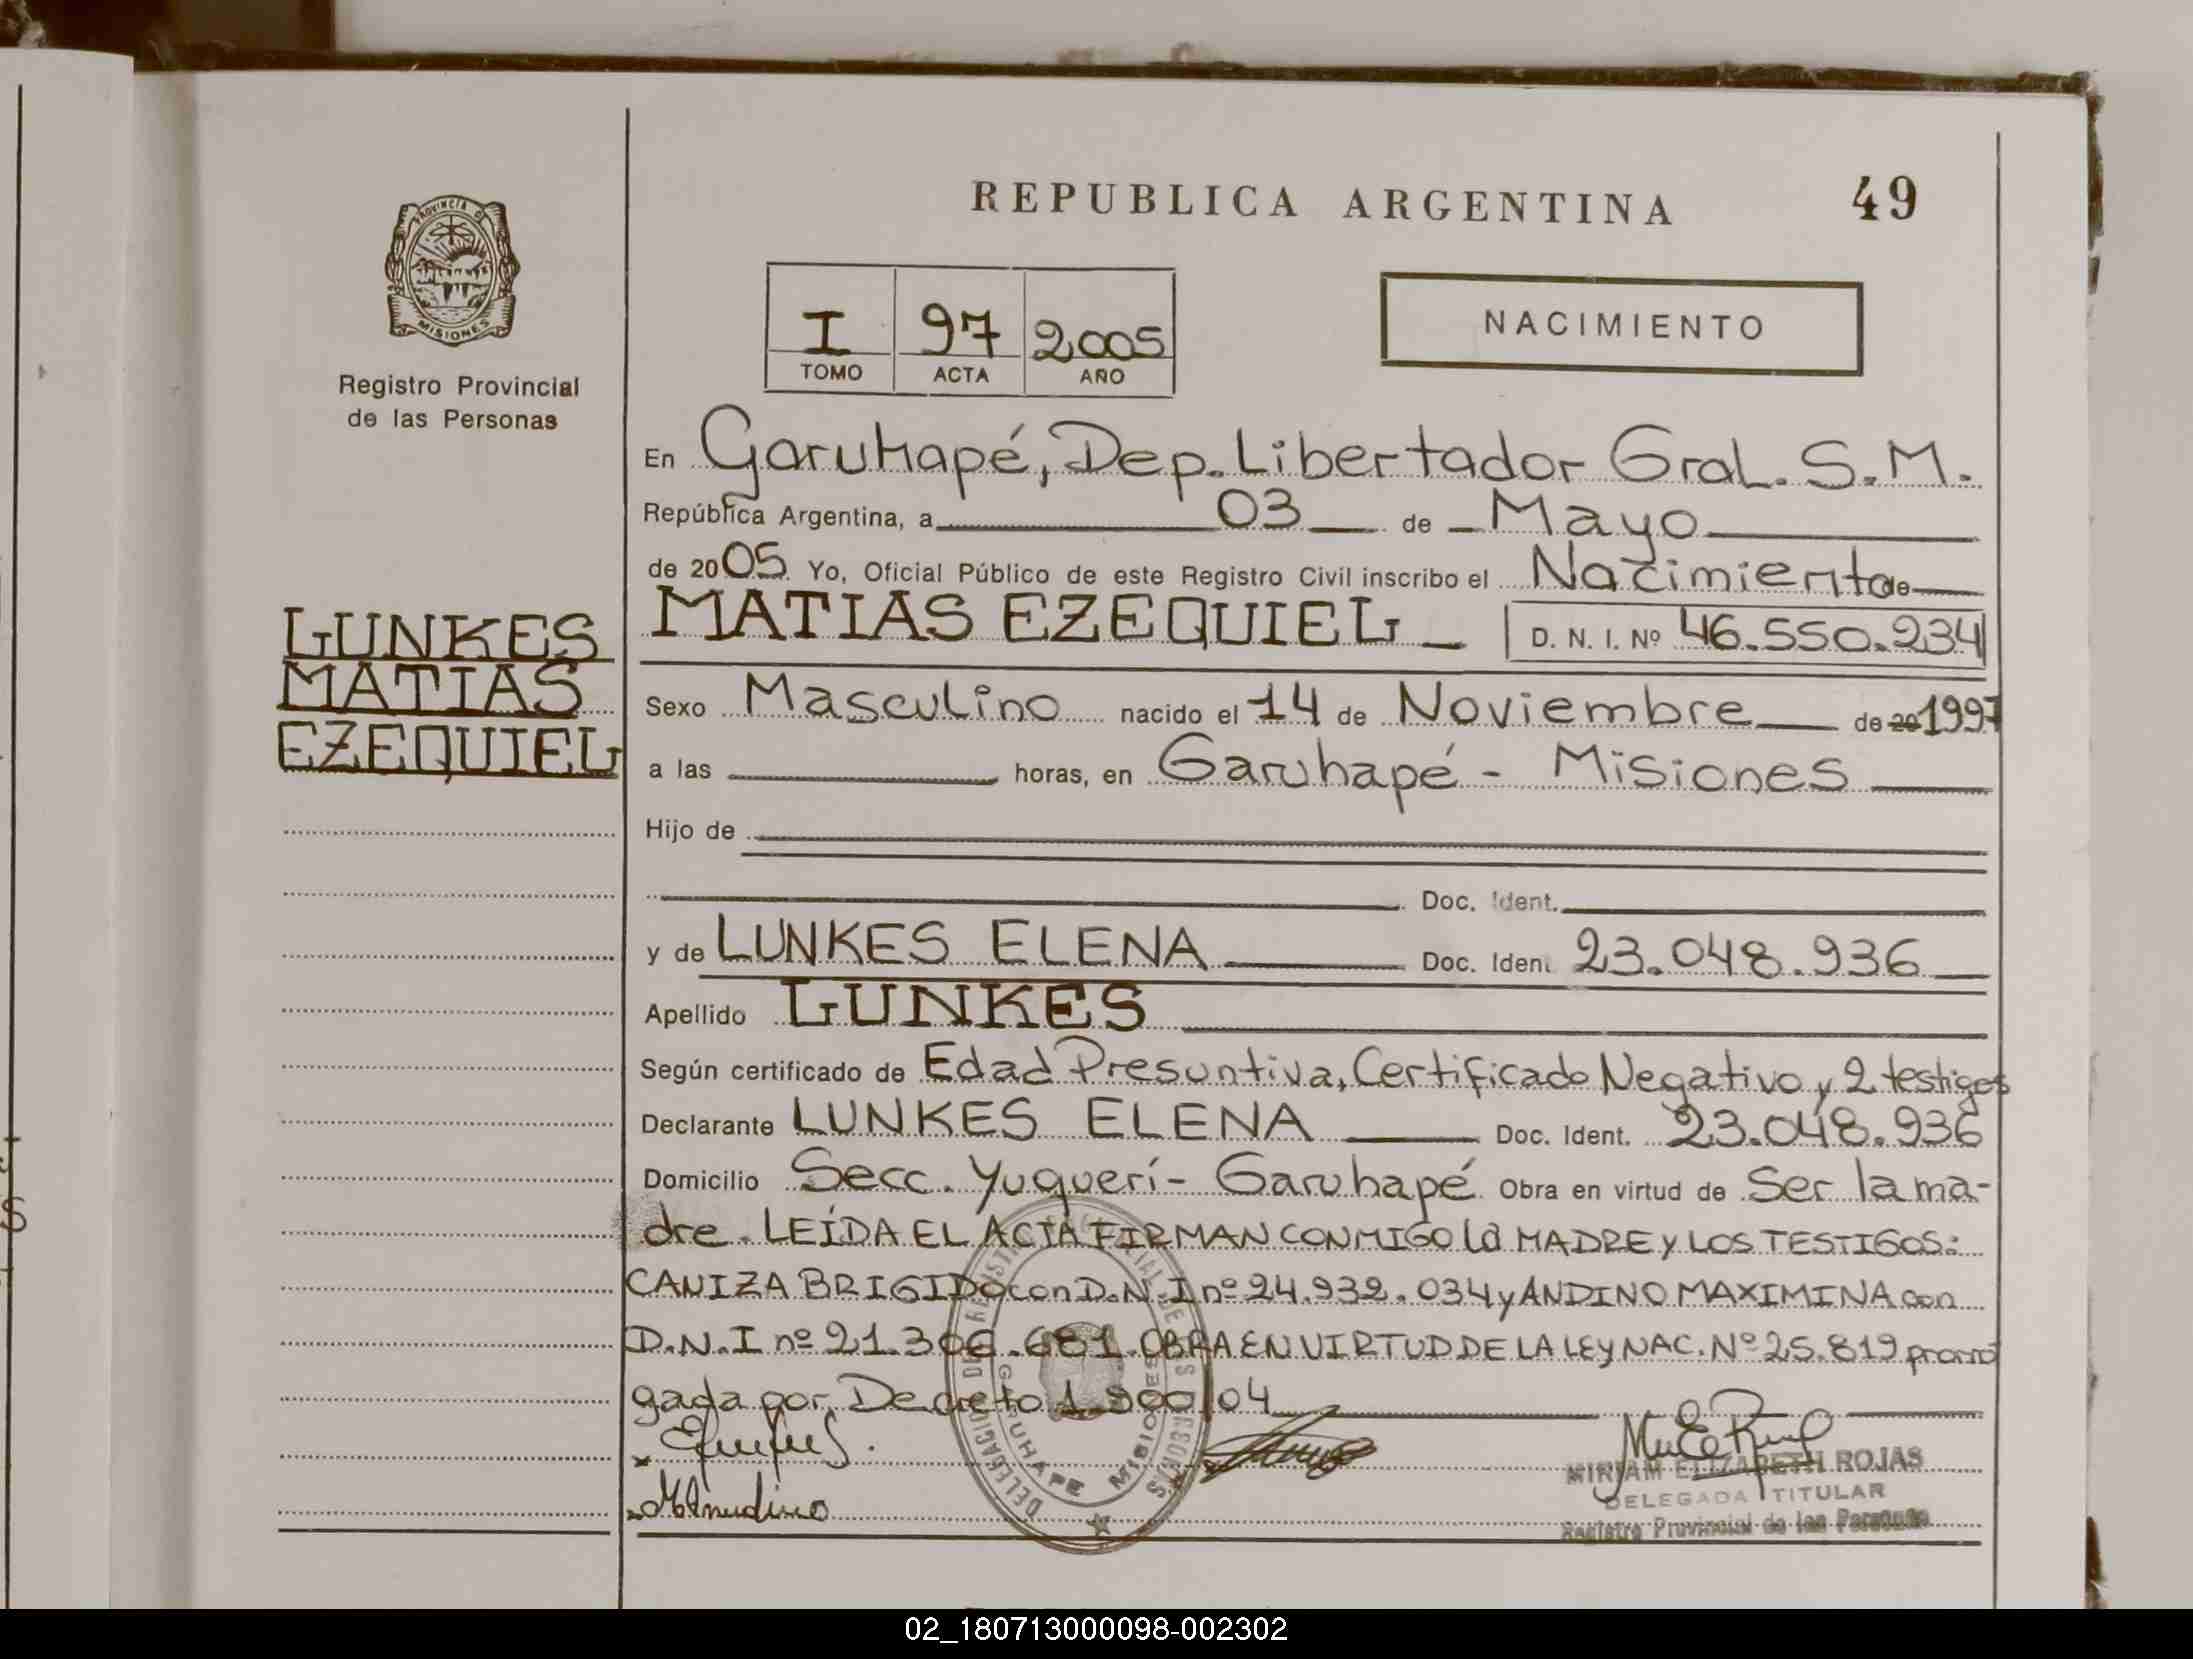 REPUBLICA ARGENTINA
49
PROVINCIA DE
MISIONES
Registro Provincial
de las Personas
I 97 2005
TOMO ACTA AÑO
NACIMIENTO
En Garuhapé, Dep. Libertador Gral. S.M.
República Argentina, a 03 de Mayo
de 2005 Yo, Oficial Público de este Registro Civil inscribo el Nacimiento de
MATIAS EZEQUIEL D. N. I. Nº 46.550.234
LUNKES
MATIAS
EZEQUIEL
Sexo Masculino nacido el 14 de Noviembre de 20 1997
a las horas, en Garuhapé - Misiones
Hijo de
Doc. Ident.
y de LUNKES ELENA Doc. Ident. 23.048.936
Apellido LUNKES
Según certificado de Edad Presuntiva, Certificado Negativo y 2 testigos
Declarante LUNKES ELENA Doc. Ident. 23.048.936
Domicilio Secc. Yuquerí - Garuhapé Obra en virtud de Ser la ma-
dre. LEÍDA EL ACTA FIRMAN CONMIGO la MADRE y LOS TESTIGOS:
CANIZA BRIGIDO con D.N.I nº 24.932.034 y ANDINO MAXIMINA con
D.N.I nº 21.306.681. OBRA EN VIRTUD DE LA LEY NAC. Nº 25.819 prorro
gada por Decreto 1.900/04
MIRIAM ELIZABETH ROJAS
DELEGADA TITULAR
Registro Provincial de las Personas
GARUHAPE MISIONES
02_180713000098-002302